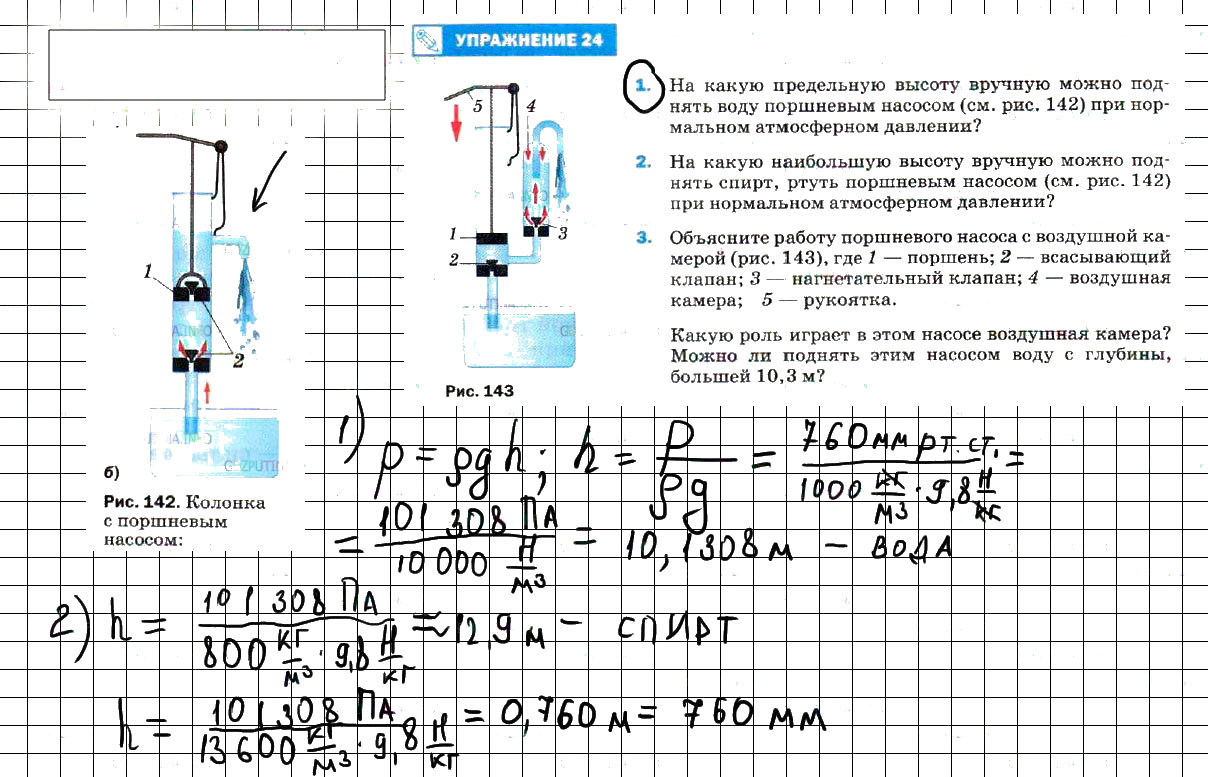 УПРАЖНЕНИЕ 24
1. На какую предельную высоту вручную можно под-
нять воду поршневым насосом (см. рис. 142) при нор-
мальном атмосферном давлении?
2. На какую наибольшую высоту вручную можно под-
нять спирт, ртуть поршневым насосом (см. рис. 142)
при нормальном атмосферном давлении?
3. Объясните работу поршневого насоса с воздушной ка-
мерой (рис. 143), где 1 — поршень; 2 — всасывающий
клапан; 3 — нагнетательный клапан; 4 — воздушная
камера; 5 — рукоятка.
Какую роль играет в этом насосе воздушная камера?
Можно ли поднять этим насосом воду с глубины,
большей 10,3 м?
5 4
1
2
3
Рис. 143
1
2
б)
Рис. 142. Колонка
с поршневым
насосом:
1) p = ρgh; h = p/ρg = 760 мм рт. ст. / 1000 кг/м3 · 9,8 Н/кг =
= 101 308 ПА / 10 000 Н/м3 = 10,1308 м – ВОДА
2) h = 101 308 ПА / 800 кг/м3 · 9,8 Н/кг ≈ 12,9 м – СПИРТ
h = 101 308 ПА / 13 600 кг/м3 · 9,8 Н/кг = 0,760 м = 760 мм